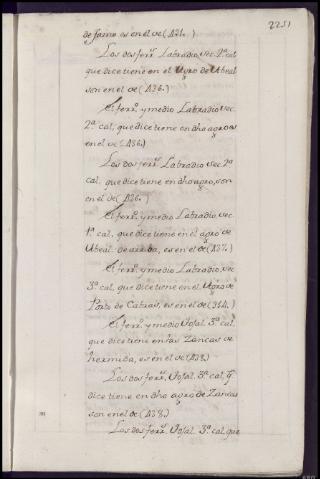 2251
de faino es en el de (A21.)
Los dos ferr.s Labradio Sec. 2.ª cal.
que dice tiene en el Agro de Ubeal
son en el de (A36.)
El ferr.º y medio Labradio Sec.
2.ª cal, que dice tiene en dho agro es
en el de (A36.)
Los dos ferr.s Labradio Sec. 2.ª
cal, que dice tiene en dho agro, son
en el de (A36.)
El ferr.º y medio Labradio Sec.
1.ª cal, que dice tiene en el agro de
Ubeal de arriba, es en el de (A37.)
El ferr.º y medio Labradio, Sec.
3.ª cal, que dice tiene en el Agro de
Porto de Cabras, es en el de (314.)
El ferr.º y medio Tojal 3.ª cal,
que dice tiene en las Zancas de
hermida, es en el de (A38.)
Los dos ferr.s Tojal 3.ª cal, q.e
dice tiene en dho agro de Zancas
son en el de (A38.)
Los dos ferr.s Tojal 3.ª cal, que